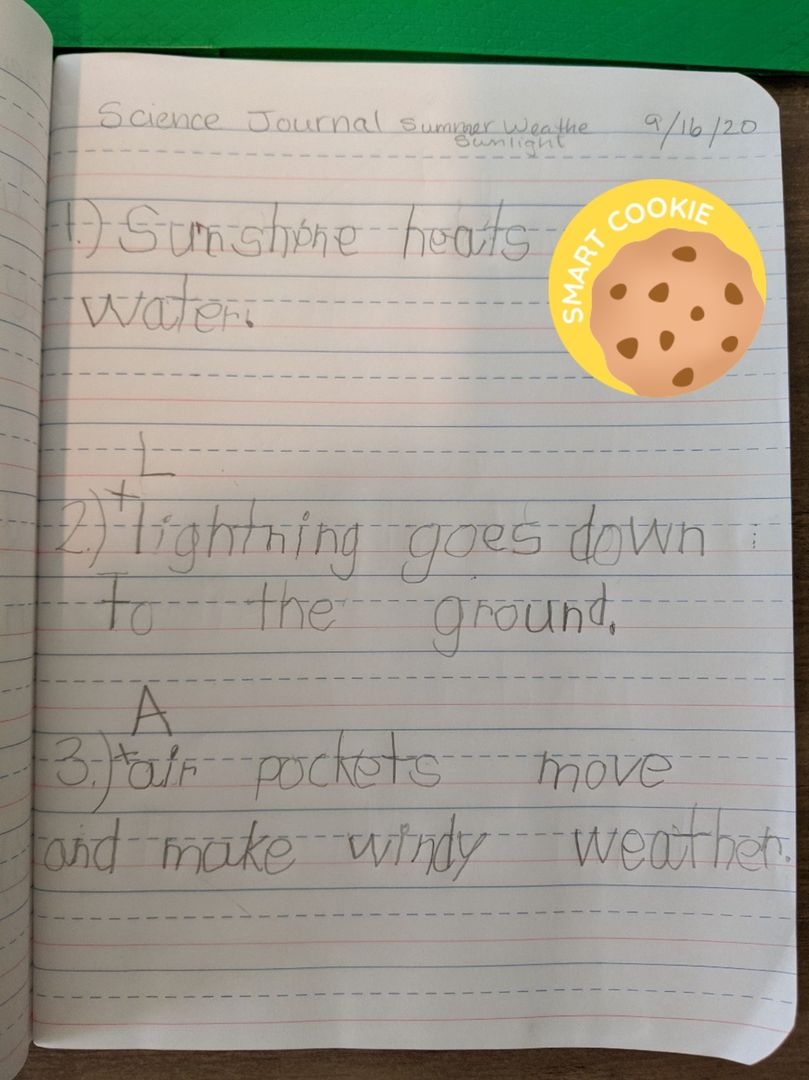 Science Journal Summer Weathe 9/16/20
Sunlight
SMART COOKIE
1.) Sunshine heats
water.
L
2.) + lightning goes down
To the ground.
A
3.) + air pockets move
and make windy weather.